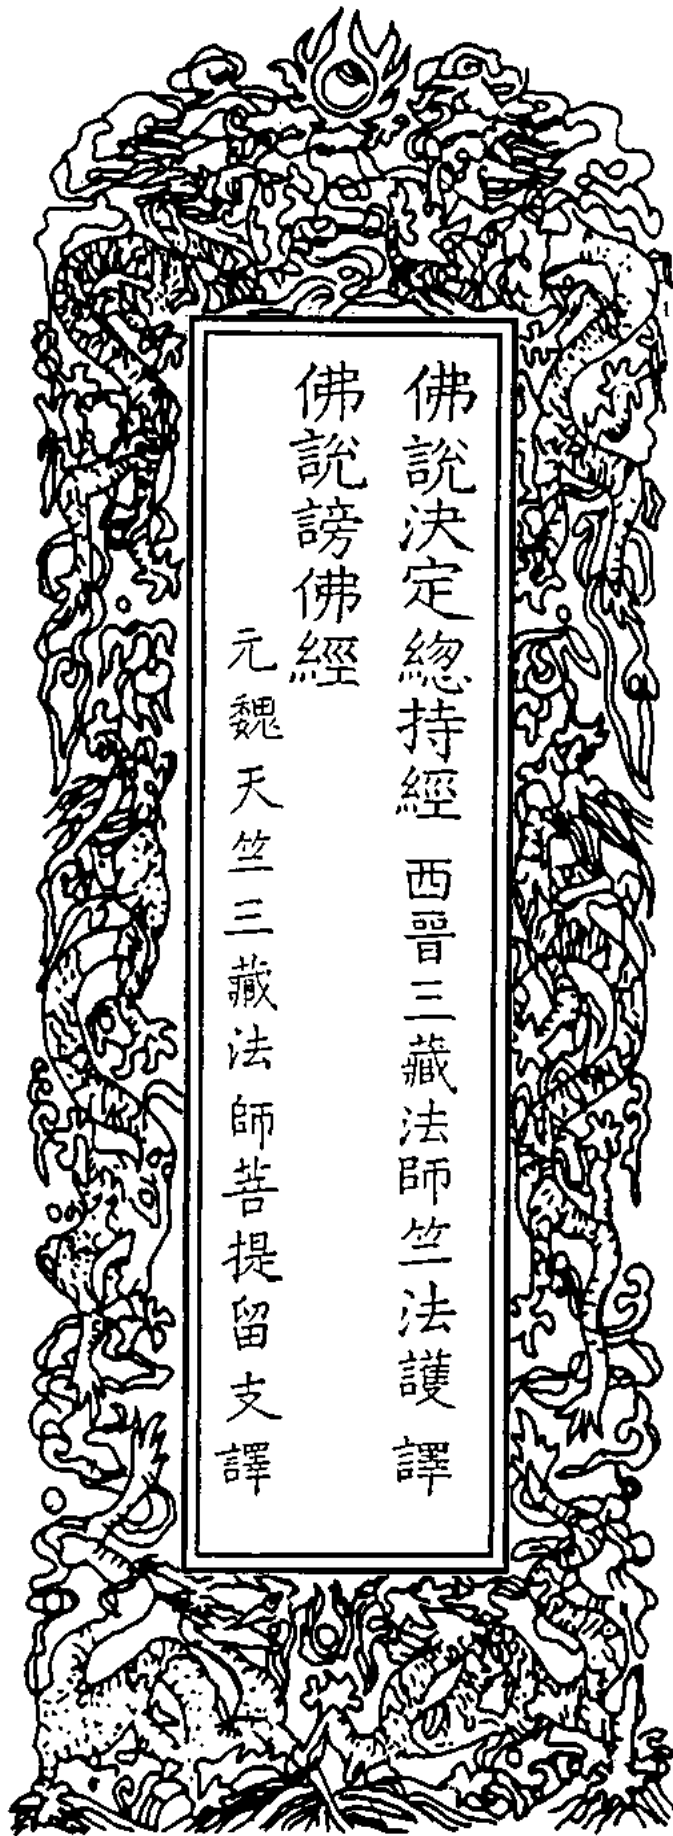 佛說決定緫持經 西晉三藏法師竺法護 譯
佛說謗佛經
元魏天竺三藏法師菩提留支譯
1